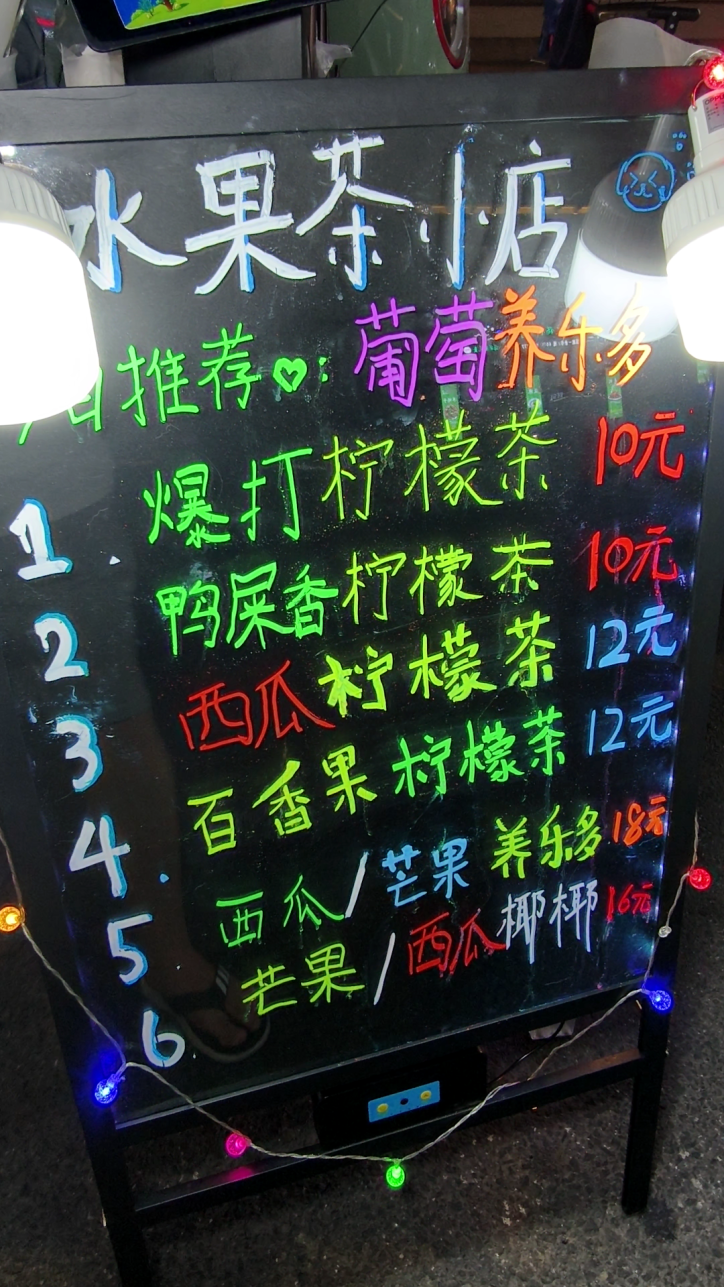 水果茶小店
今日推荐♡: 葡萄养乐多
1. 爆打柠檬茶 10元
2 鸭屎香柠檬茶 10元
3 西瓜柠檬茶 12元
4. 百香果柠檬茶 12元
5 西瓜/芒果 养乐多 18元
6. 芒果/西瓜椰椰 16元